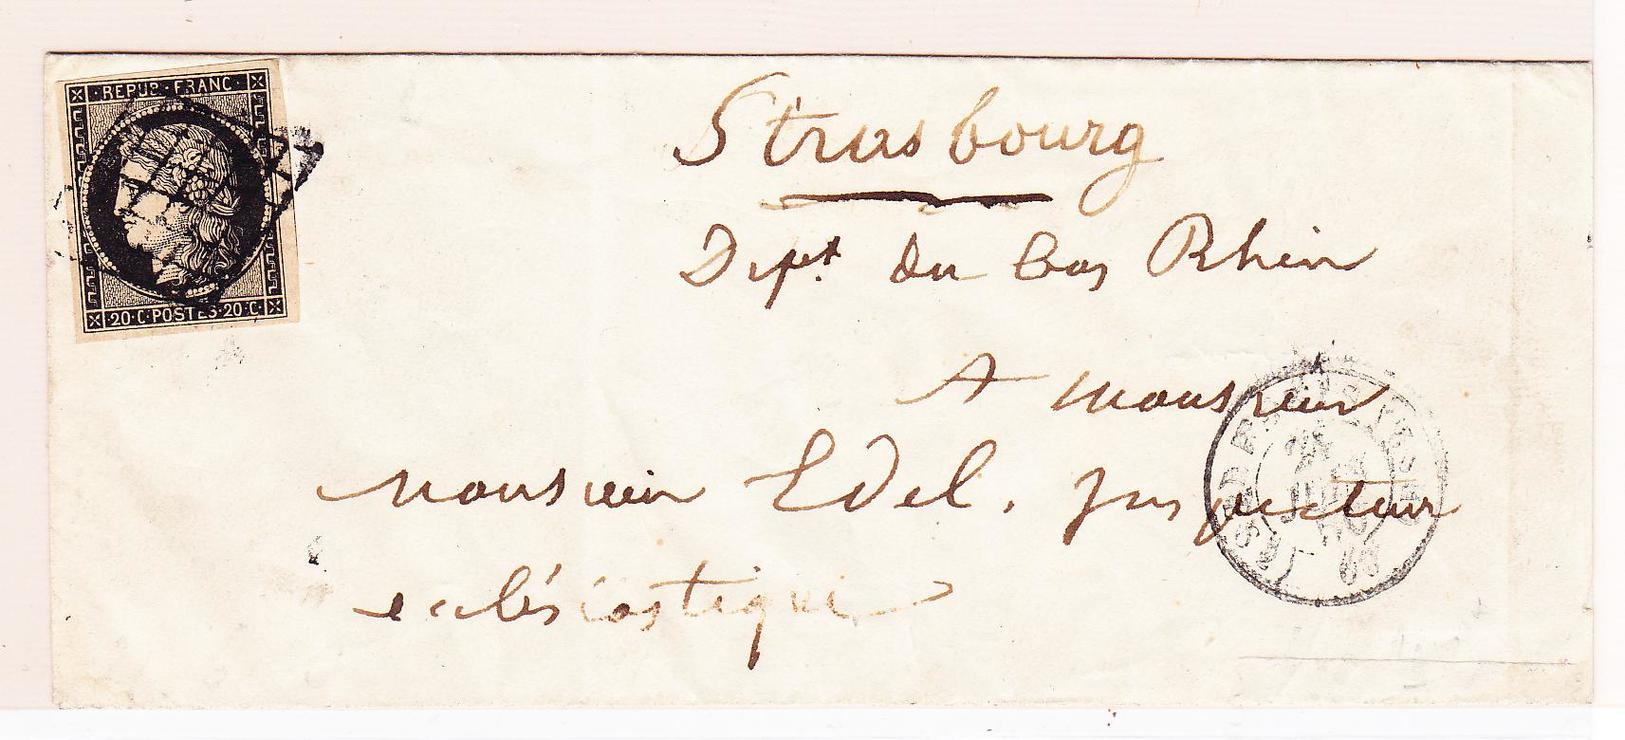 REPUB·FRANC·
20·C·POSTES·20·C·
Strasbourg
Dept. du bas Rhin
A Monsieur
Monsieur Edel, Inspecteur
ecclésiastique